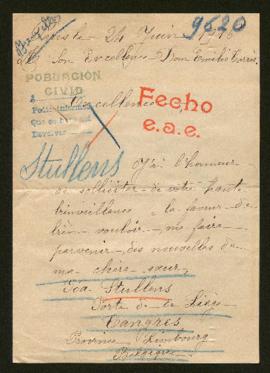 9620
24 Juin
A Son Excellence Dom Emilio Torrès
POBLACIÓN
CIVIL
Excellence
Fecho
e.a.e.
Stullens
J'ai l'honneur
de solliciter de votre haute
bienveillance la faveur de
bien vouloir me faire
parvenir des nouvelles de
ma chère sœur
Ida Stullens
Porte de Liège
Tongres
Province Limbourg
Belgique